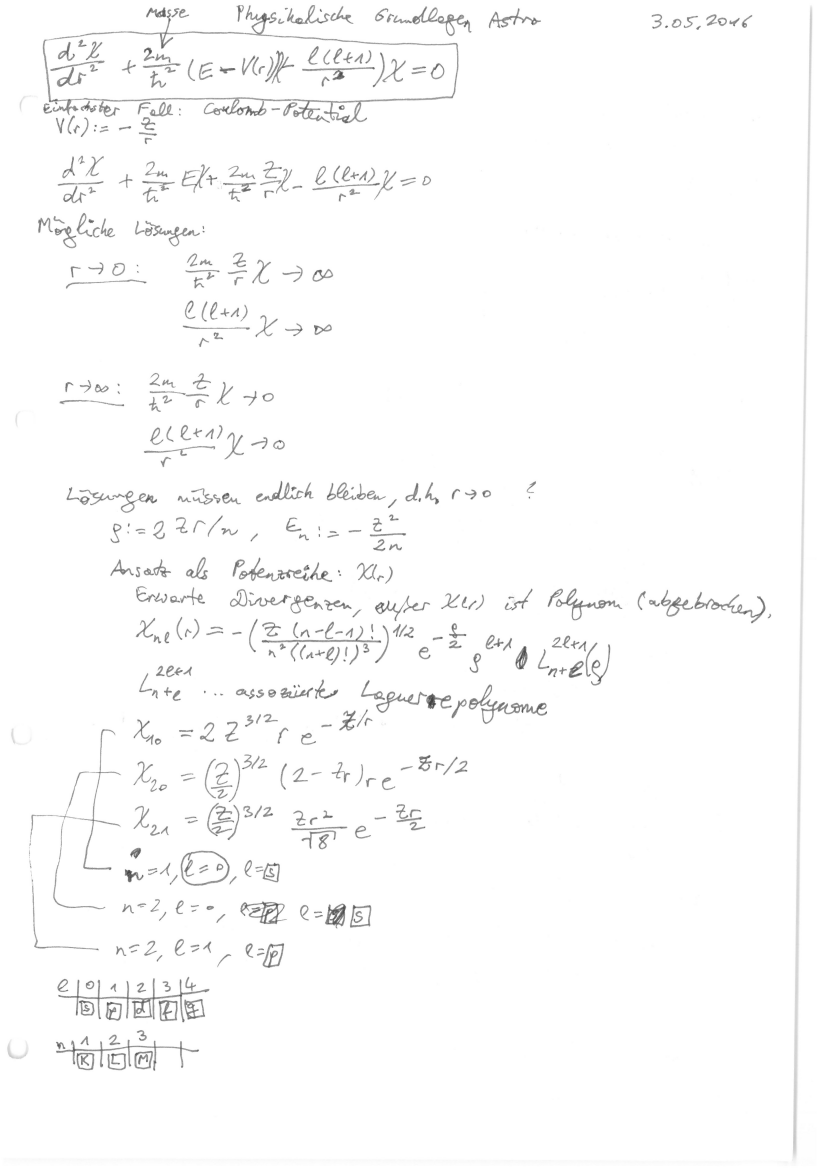 Masse Physikalische Grundlagen Astro 3.05.2016
d²χ/dr² + 2m/ħ² (E - V(r))χ - l(l+1)/r² )χ = 0
Einfachster Fall: Coulomb-Potential
V(r) := - Z/r
d²χ/dr² + 2m/ħ² Eχ + 2m/ħ² Z/r χ - l(l+1)/r² χ = 0
Mögliche Lösungen:
r → 0 : 2m/ħ² Z/r χ → ∞
l(l+1)/r² χ → ∞
r → ∞ : 2m/ħ² Z/r χ → 0
l(l+1)/r² χ → 0
Lösungen müssen endlich bleiben, d.h. r → 0 ?
ρ := 2Zr/n , Eₙ := - Z²/2n
Ansatz als Potenzreihe: χ(r)
Erwarte Divergenzen, außer χ(r) ist Polynom (abgebrochen).
χₙₗ(r) = -(Z (n-l-1)! / n²((n+l)!)³)^1/2 e^(-ρ/2) ρ^(l+1) L_(n+l)^(2l+1)(ρ)
L_(n+l)^(2l+1) ... assoziierte Laguerrepolynome
χ₁₀ = 2 Z^3/2 r e^(-Z/r)
χ₂₀ = (Z/2)^3/2 (2 - Zr) r e^(-Zr/2)
χ₂₁ = (Z/2)^3/2 Zr²/√8 e^(-Zr/2)
n=1, l=0, l=s
n=2, l=0, l= s
n=2, l=1, l=p
l | 0 | 1 | 2 | 3 | 4
s | p | d | f | g
n | 1 | 2 | 3
K | L | M